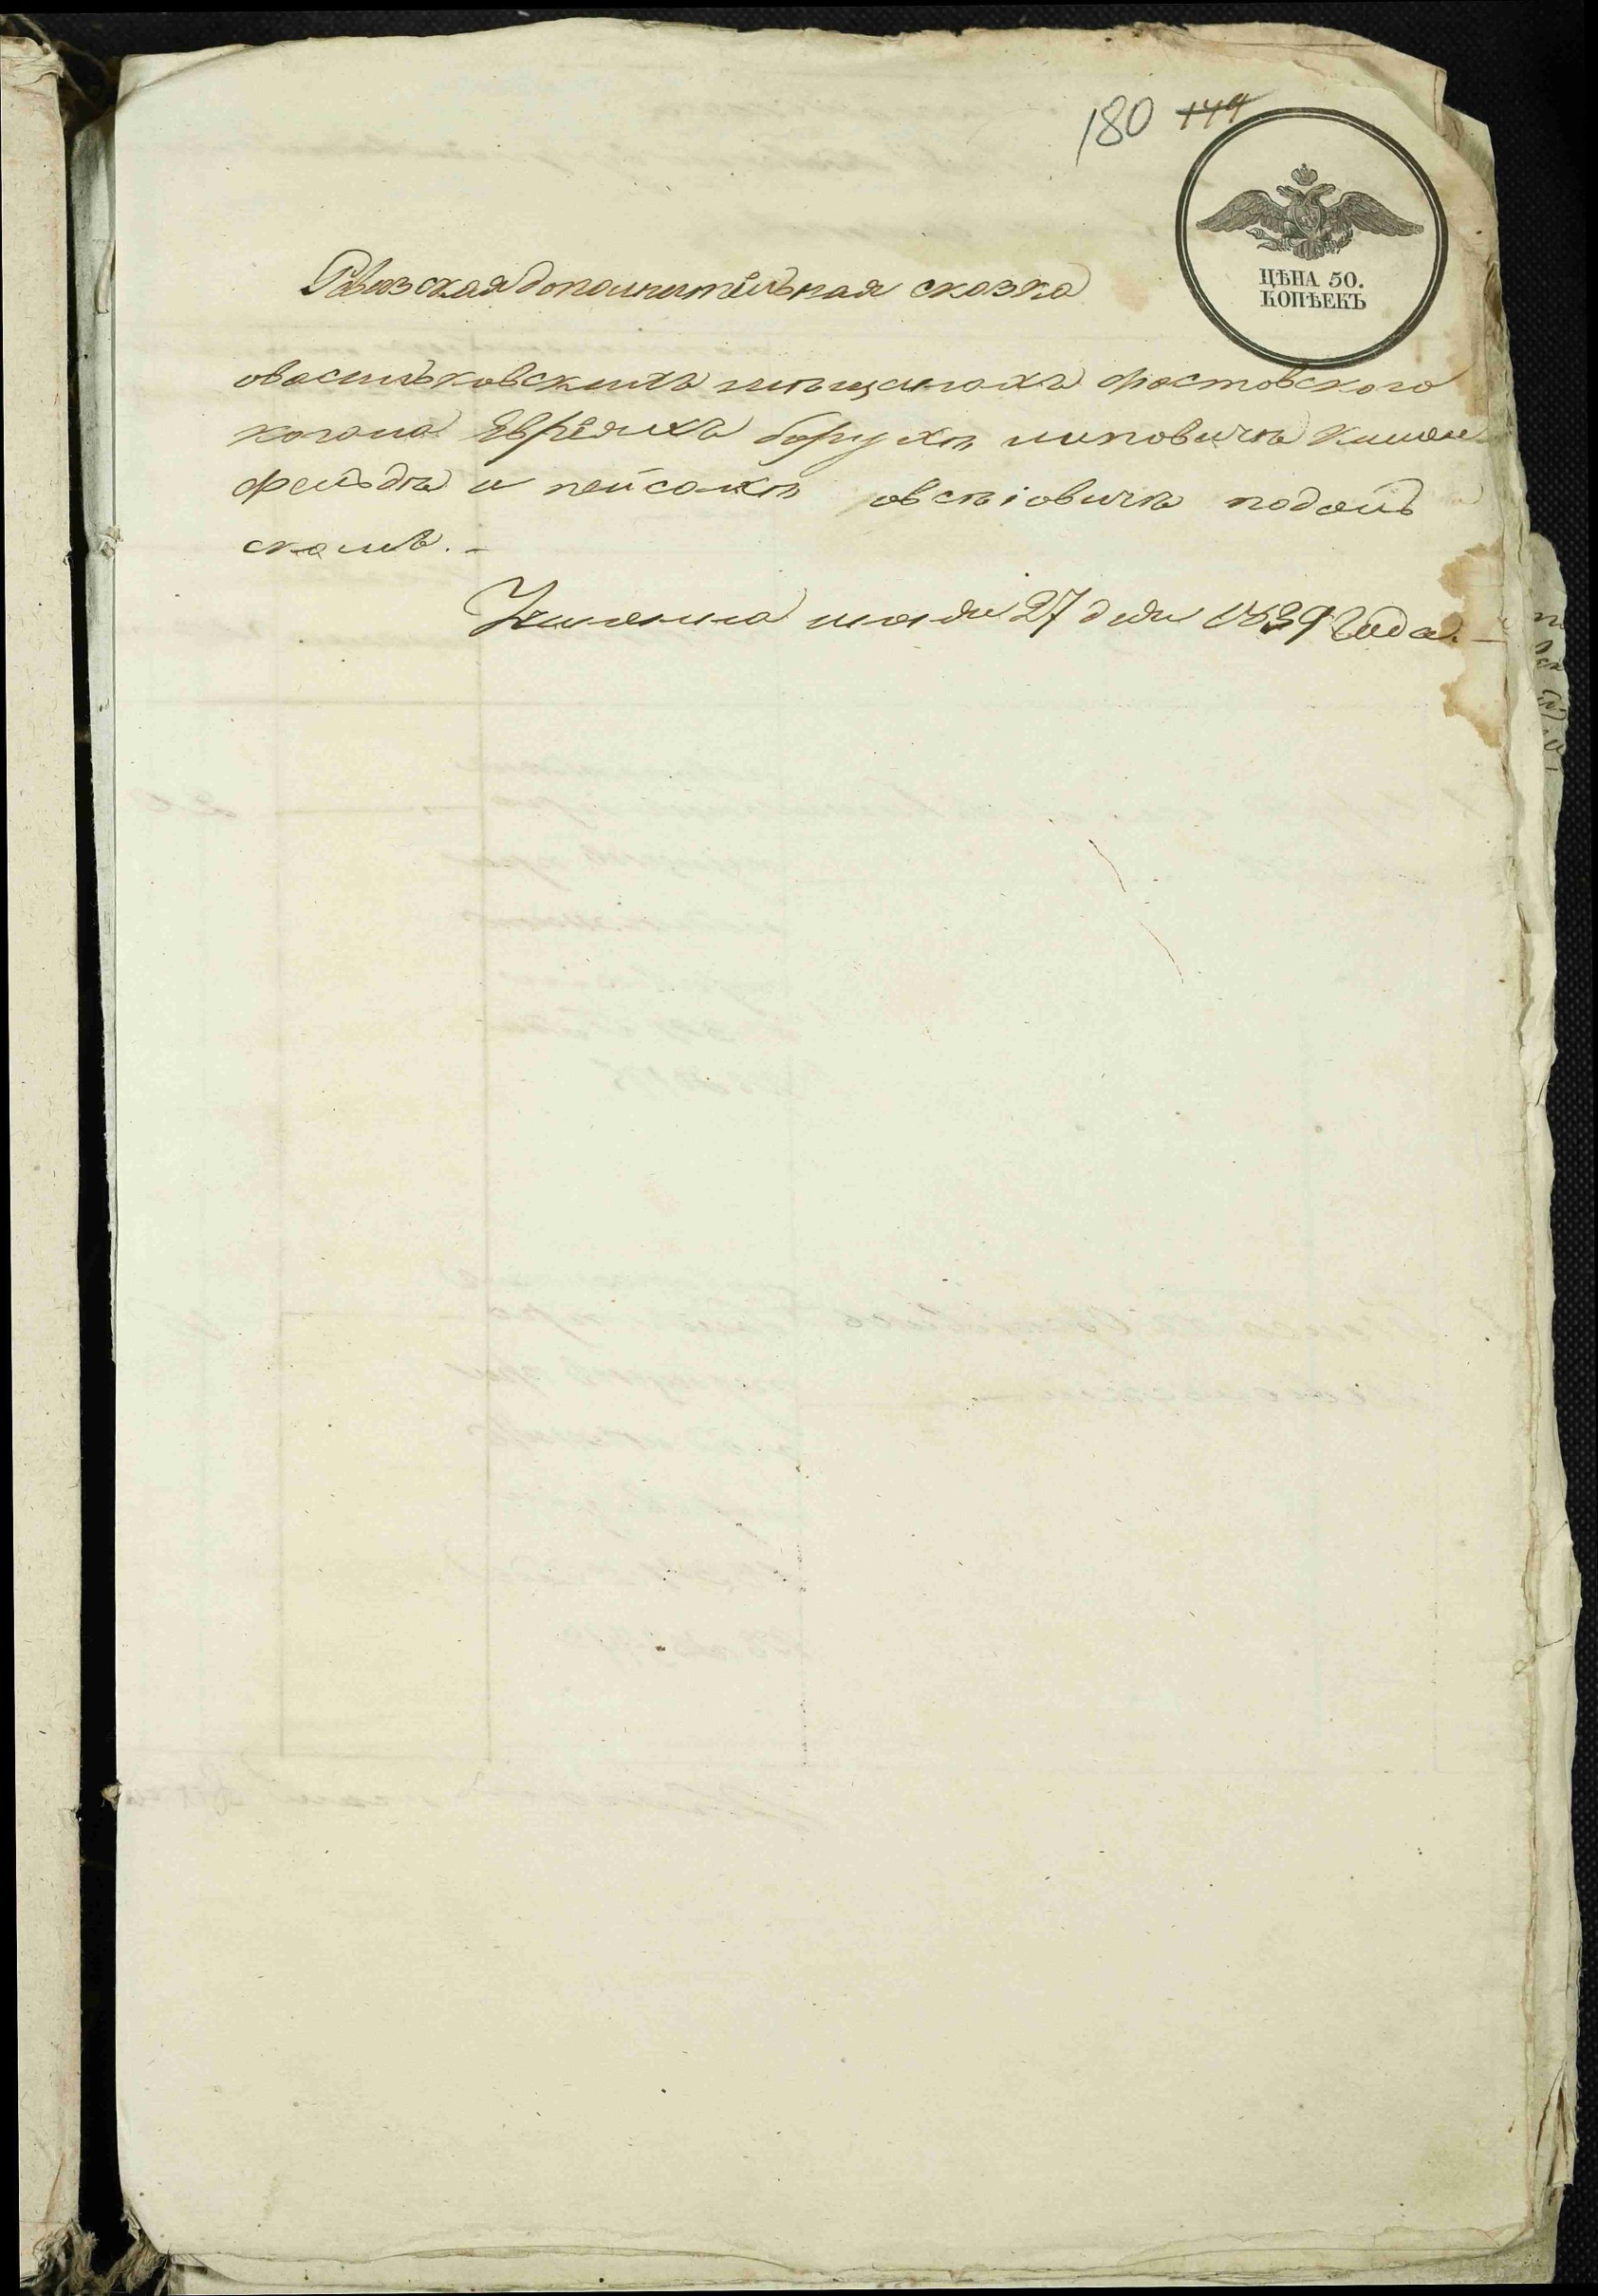 180 179
ЦѢНА 50.
КОПѢЕКЪ
Ревизская дополнительная сказка
о васильковскихъ мещанахъ фастовского
кагала Евреяхъ борухѣ липовичѣ
фельдѣ и пейсахѣ овсѣiовичѣ подоль
скомъ. -
маия 27 дня 1839 Года. -